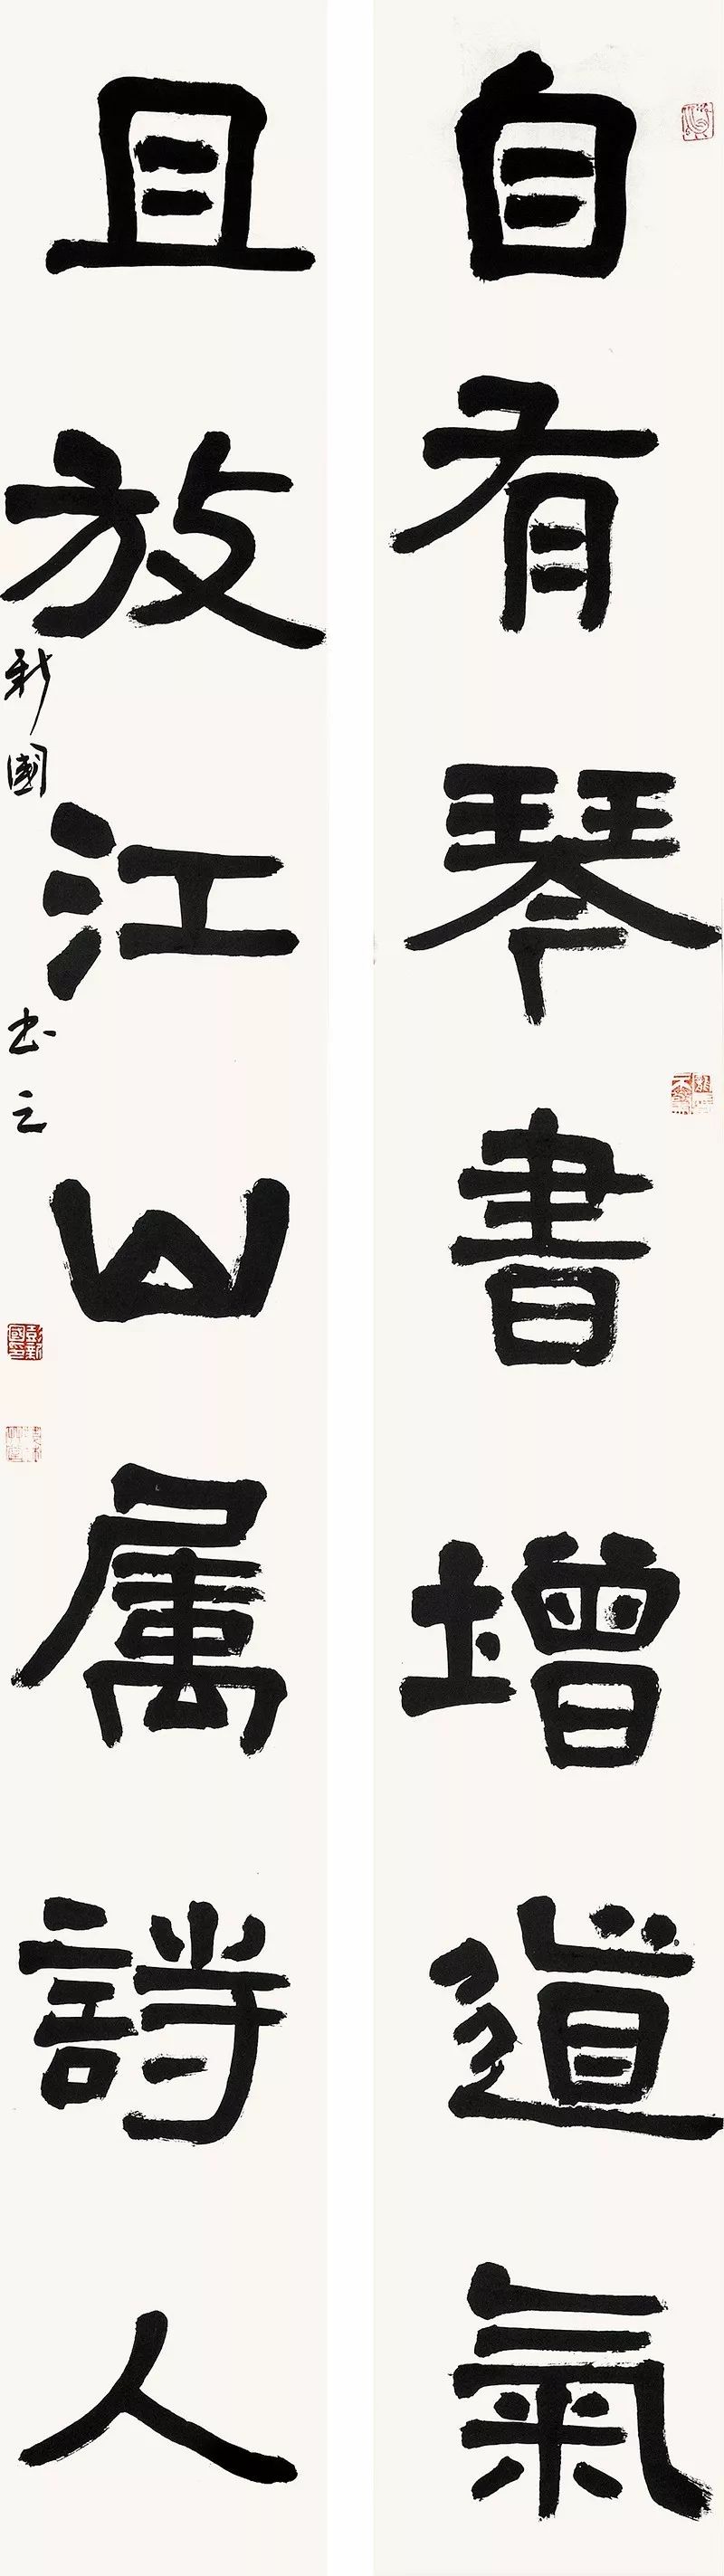 自有琴書增道氣
且放江山属詩人
新國書之
彭新國印